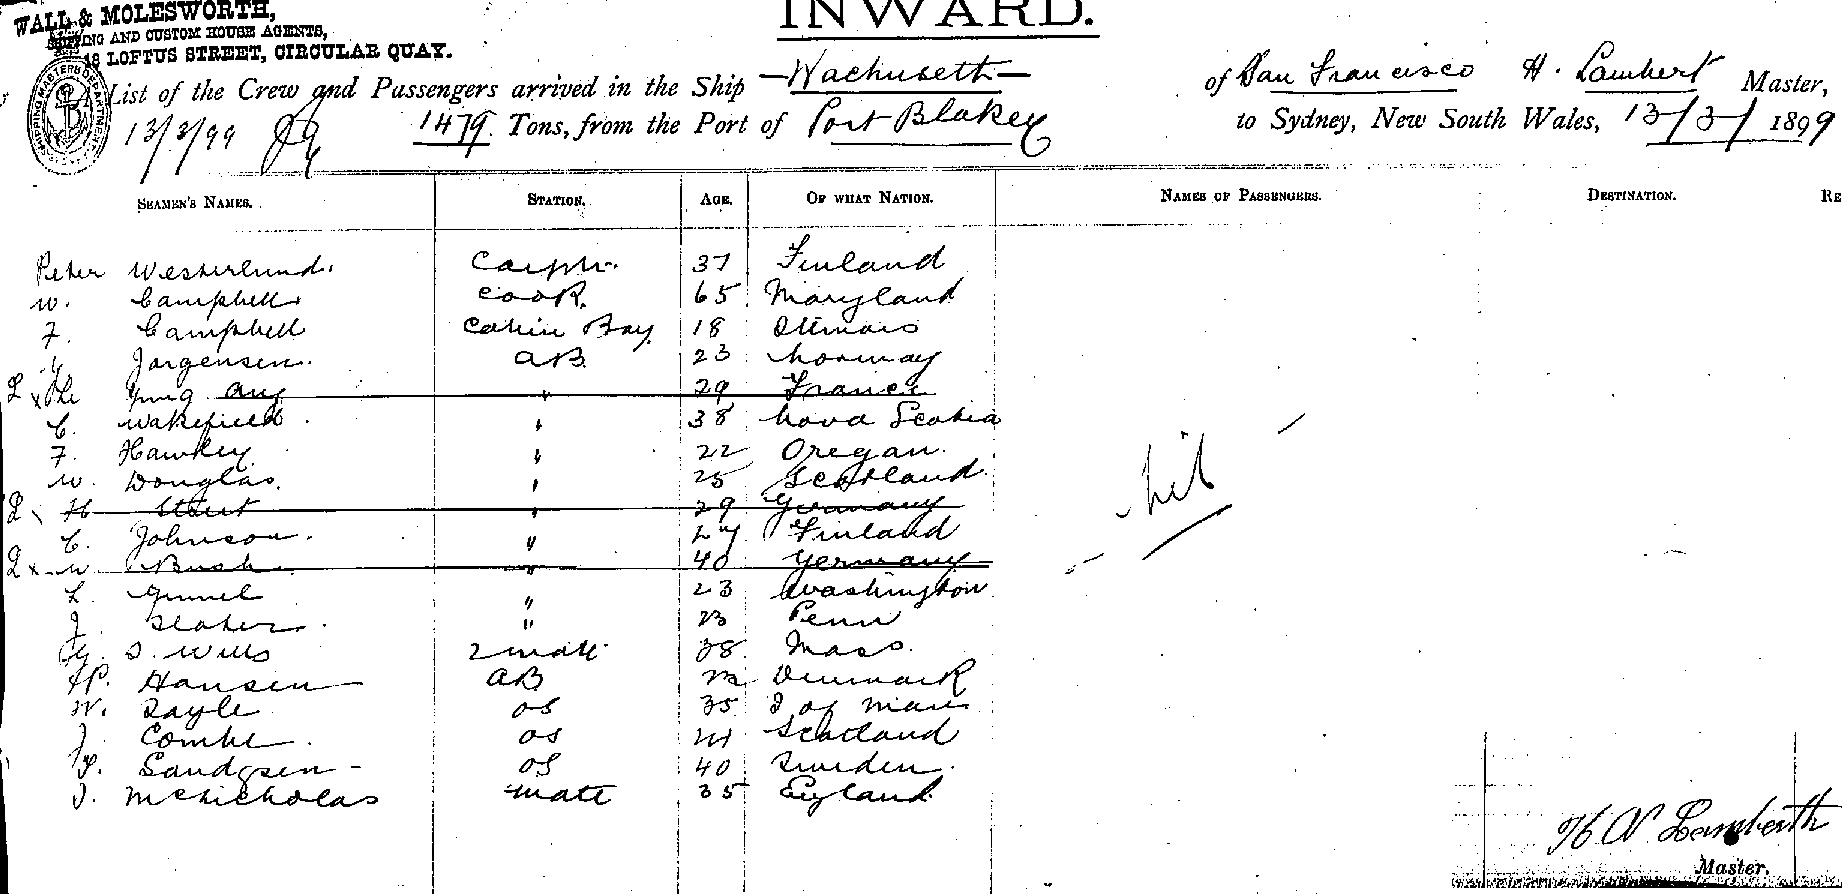 WALL & MOLESWORTH,
INWARD.
SHIPPING AND CUSTOM HOUSE AGENTS,
18 LOFTUS STREET, CIRCULAR QUAY.
SHIPPING MASTERS DEPARTMENT
List of the Crew and Passengers arrived in the Ship —Wachusett— of San Francisco H. Lambert Master,
13/3/99 1479 Tons, from the Port of Port Blakey to Sydney, New South Wales, 13/3/1899
SEAMEN'S NAMES. STATION. AGE. OF WHAT NATION. NAMES OF PASSENGERS. DESTINATION. RE
Peter Westerlund. Carptr. 37 Finland
W. Campbell Cook. 65 Maryland
F. Campbell Cabin Boy 18 Illinois
Jorgensen. AB 23 Norway
29 France
C. Wakefield. " 38 Nova Scotia
F. Hawkey " 22 Oregan.
W. Douglas. " 25 Scotland.
H " 29 Germany
C. Johnson. " Finland
W Bush " 40 Germany
L. " 23 Washington
J. " 23 Penn
S. Wills 2 mate 38 Mass.
P. Hansen AB Denmark
W. OS 35 I of Man
J. OS Scotland
OS 40 Sweden.
J. McNicholas Mate 35 England.
Nil
Master.